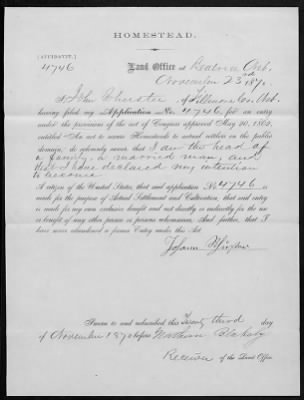 HOMESTEAD.
[AFFIDAVIT.]
4746
Land Office at Beatrice Neb.
November 23rd 1870.
I John of Fillmore Co. Neb.
having filed my Application No. 4746, for an entry
under the provisions of the act of Congress approved May 20, 1862,
entitled "An act to secure Homesteads to actual settlers on the public
domain," do solemnly swear that I am the head of
a family, a married man, and
that I have declared my intention
to become
A citizen of the United States, that said application No. 4746 is
made for the purpose of Actual Settlement and Cultivation, that said entry
is made for my own exclusive benefit and not directly or indirectly for the use
or benefit of any other person or persons whomsoever, And further, that I
have never abandoned a former Entry under this Act.
Johann
Sworn to and subscribed this Twenty third day
of November 1870 before Nathan Blakely
Receiver of the Land Office.